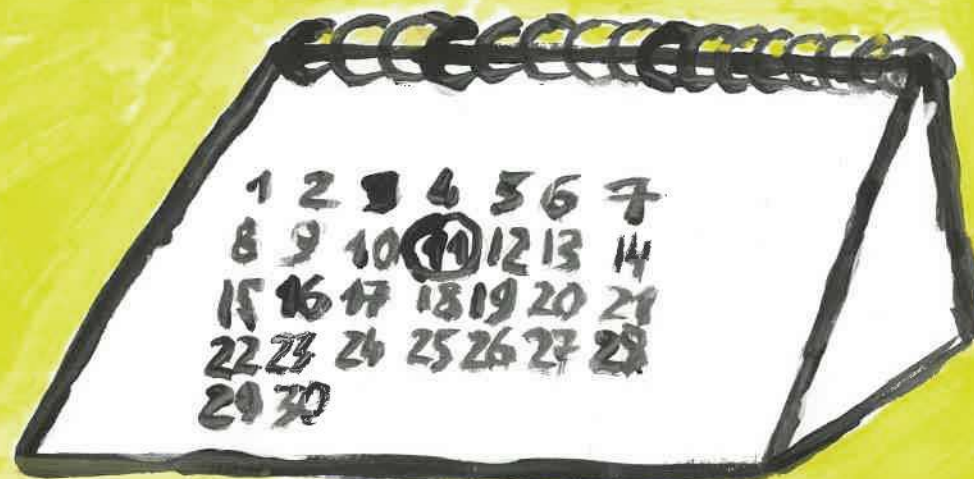 1 2 3 4 5 6 7
8 9 10 11 12 13 14
15 16 17 18 19 20 21
22 23 24 25 26 27 28
29 30